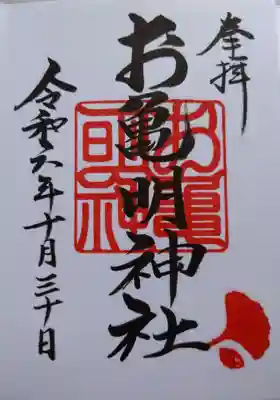 奉拝
お亀明神社
令和六年十月三十日